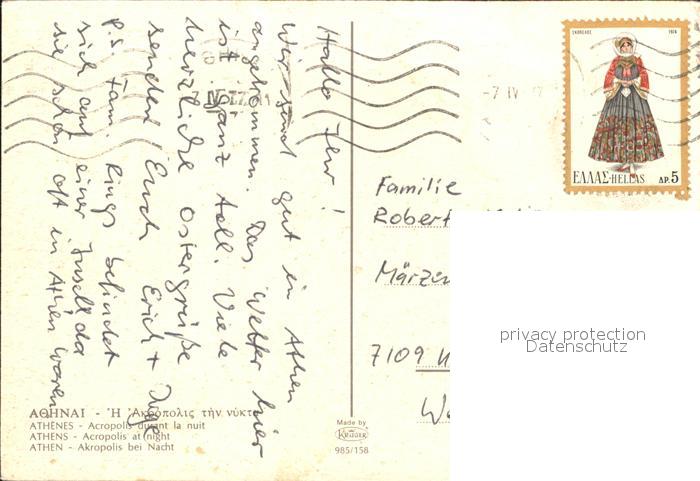 Hallo Ihr!
Wir sind gut in Athen
angekommen. Das Wetter hier
ist ganz toll. Viele
herzliche Ostergrüße
senden Euch Erich + Inge
P.S. Fam. Rings befindet
sich auf einer Insel, da
sie schon oft in Athen waren
ΑΘΗΝΑΙ - Ἡ Ἀκρόπολις τὴν νύκτα
ATHÈNES - Acropolis durant la nuit
ATHENS - Acropolis at night
ATHEN - Akropolis bei Nacht
Made by
KRÜGER
985/158
ΣΚΟΠΕΛΟΣ 1974
ΕΛΛΑΣ-HELLAS ΔΡ.5
-7 IV
Familie
Robert
März
7109
privacy protection
Datenschutz